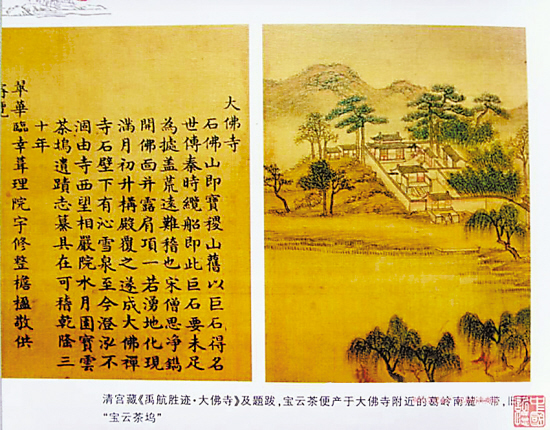 大佛寺
石佛山即寶稷山舊以巨石得名
世傳秦時纜船即此巨石要未足
為據蓋荒遠難稽也宋僧思净鐫
開佛面并露肩項一若湧地化現
滿月初升構殿覆之遂成大佛禪
寺石壁下有沁雪泉至今澄泓不
涸由寺西望相嚴院水月園寶雲
茶塢遺蹟志乘具在可稽乾隆三
十年
翠華臨幸葺理院宇修整檐楹敬供
覽
清宫藏《禹航胜迹·大佛寺》及题跋,宝云茶便产于大佛寺附近的葛岭南麓一带,
“宝云茶坞”